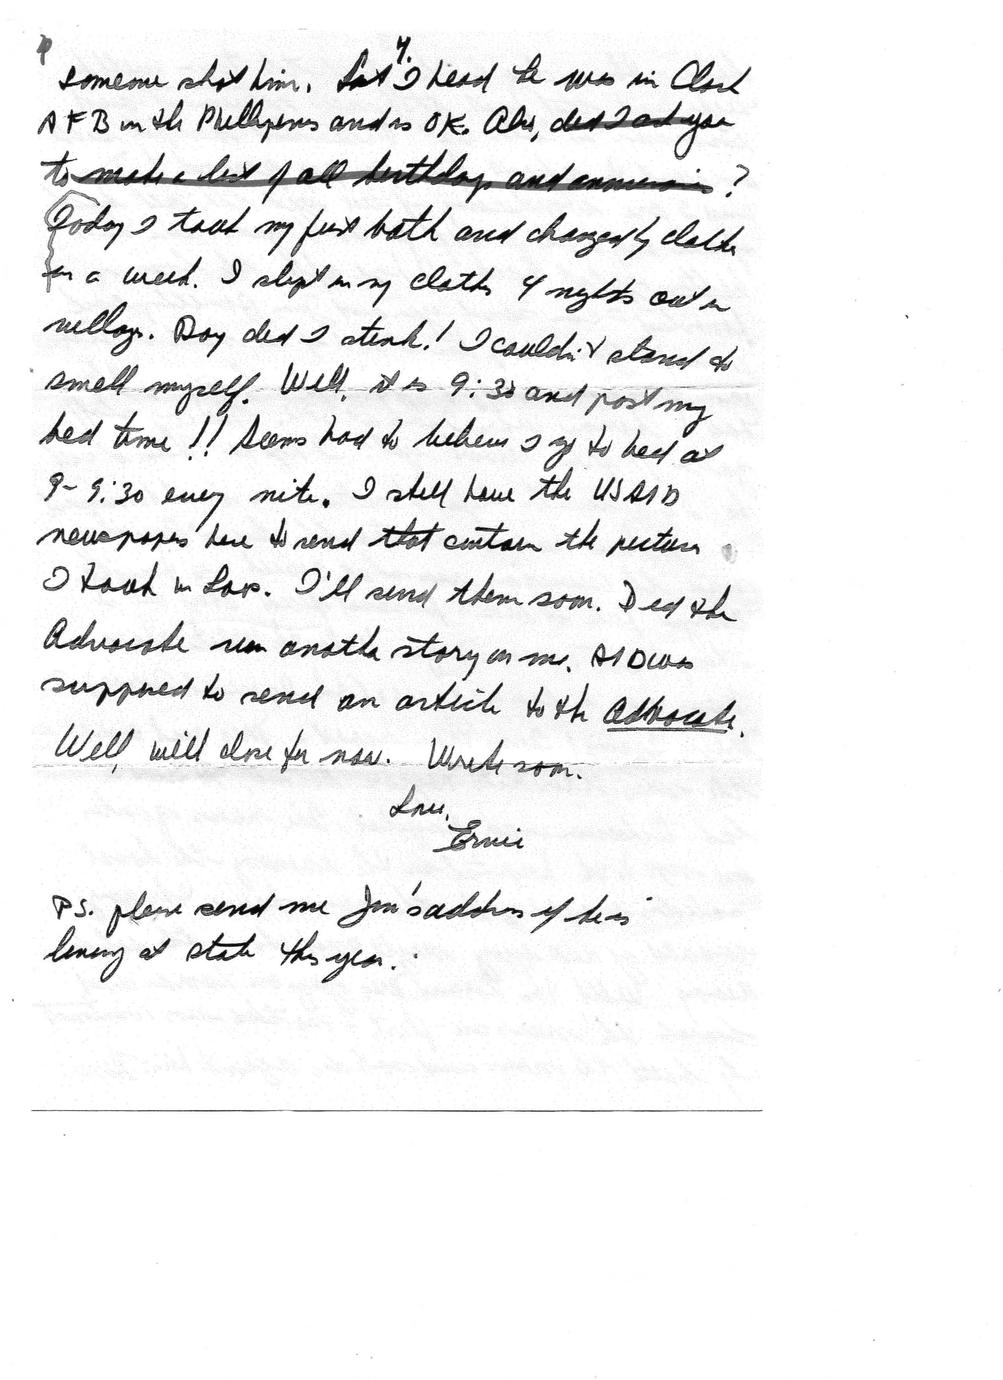 4.
someone shot him. Last I heard he was in Clark
AFB in the Phillipines and is OK. Also, did I ask you
to make a list of all birthdays and anniversaries?
Today I took my first bath and changed my cloths
in a week. I slept in my cloths 4 nights out in
village. Boy did I stink! I couldn't stand to
smell myself. Well, it is 9:30 and past my
bed time!! Seems hard to believe I go to bed at
9-9:30 every nite. I still have the USAID
newspapers here to send that contain the pictures
I took in Laos. I'll send them soon. Did the
Advocate run another story on me. AID was
supposed to send an article to the Advocate.
Well, will close for now. Write soon.
Love,
Ernie
PS. please send me Jim's address if he is
living at state this year.